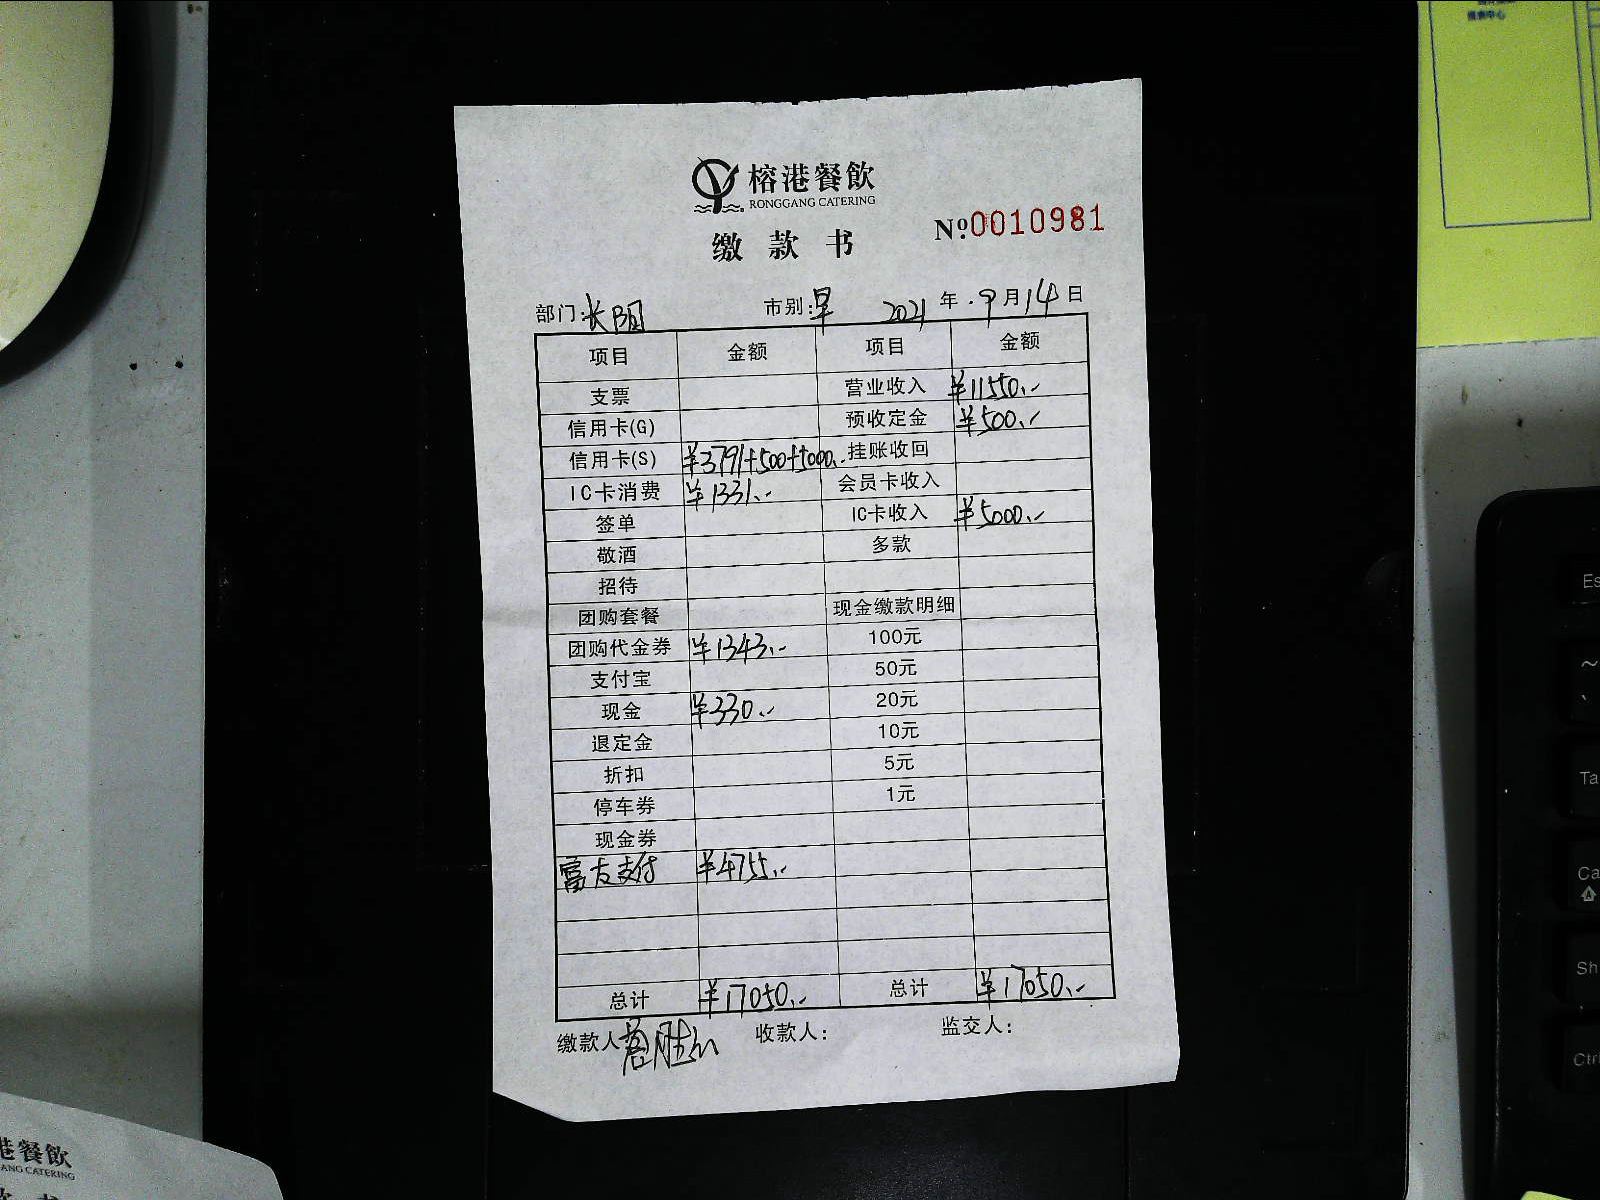 榕港餐飲
RONGGANG CATERING
缴款书 Nº0010981
部门:长阳 市别:早 2021年.9月14日
项目 金额 项目 金额
支票 营业收入 ¥11550.-
信用卡(G) 预收定金 ¥500.-
信用卡(S) ¥3791+500+5000.- 挂账收回
IC卡消费 ¥1331.- 会员卡收入
签单 IC卡收入 ¥5000.-
敬酒 多款
招待
团购套餐 现金缴款明细
团购代金券 ¥1343.- 100元
支付宝 50元
现金 ¥330.- 20元
退定金 10元
折扣 5元
停车券 1元
现金券
富友支付 ¥4755.-
总计 ¥17050.- 总计 ¥17050.-
缴款人 收款人: 监交人:
港餐飲
GANG CATERING
Es
~
、
Ta
Ca
Sh
Ctrl